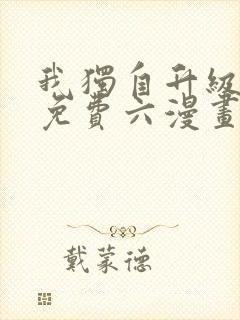 我獨自升級
免費六漫畫
戴蒙德